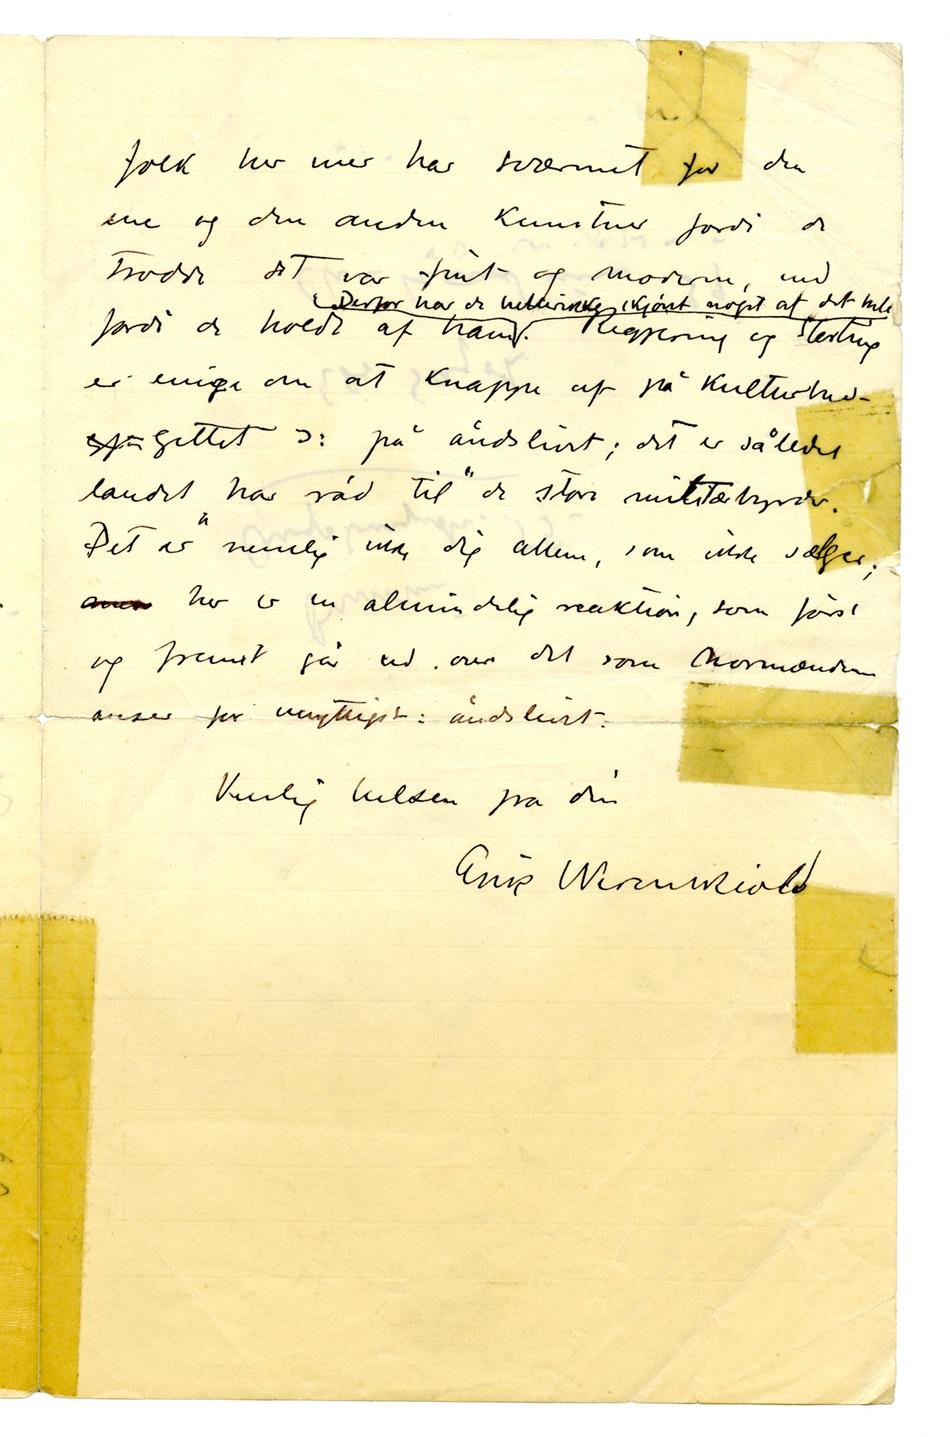 folk her mer har sværmet for den
ene og den anden kunstner fordi de
trodde det var fint og moderne, end
Derfor har de heller ikke skjønt noget af det hele
fordi de holdt af ham. Regjering og Storting
er enige om at knappe af på kulturbud-
gettet ɔ: på åndslivet; det er således
landet "har råd til" de store militærbyrder.
Det er nemlig ikke dig allene, som ikke sælger;
her er en almindelig reaktion, som først
og fremst går ud over det som Nordmændene
anser for unyttigst: åndslivet.
Venlig hilsen fra din
Erik Werenskiold